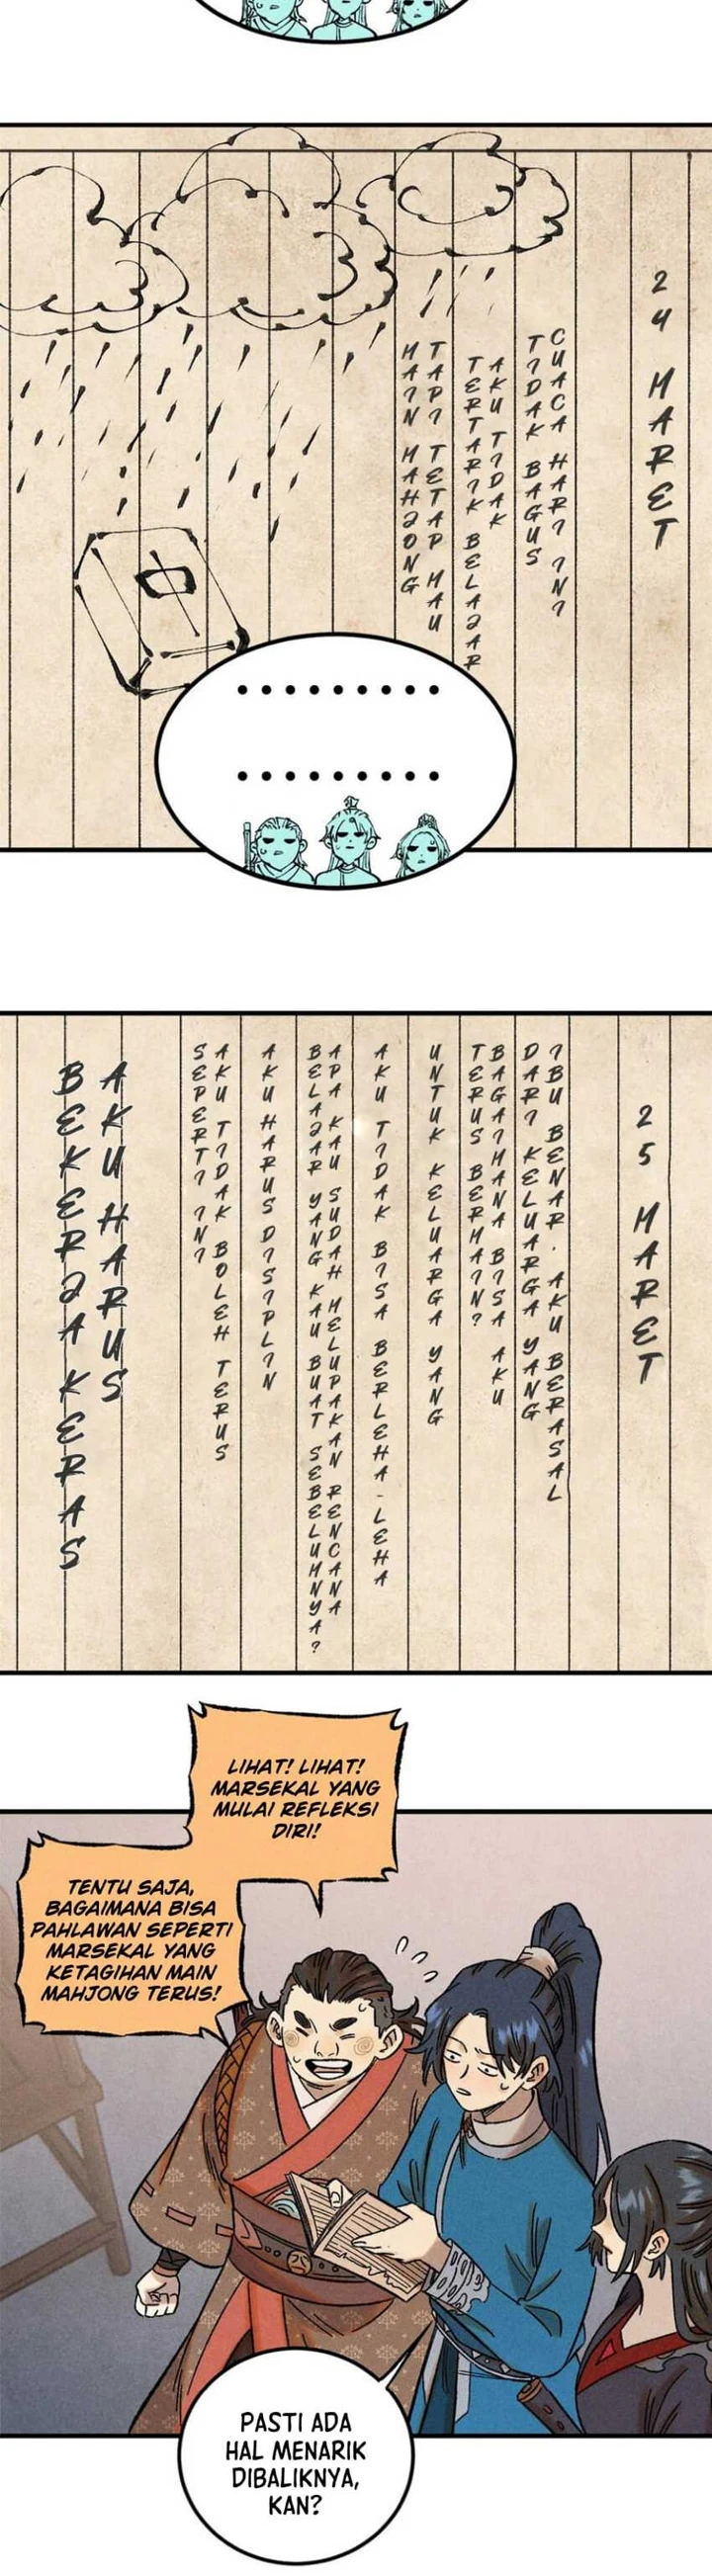 24 MARET
CUACA HARI INI
TIDAK BAGUS
AKU TIDAK
TERTARIK BELAJAR
TAPI TETAP MAU
MAIN MAHJONG
中
.........
.........
25 MARET
IBU BENAR. AKU BERASAL
DARI KELUARGA YANG
BAGAIMANA BISA AKU
TERUS BERMAIN?
UNTUK KELUARGA YANG
AKU TIDAK BISA BERLEHA-LEHA
APA KAU SUDAH MELUPAKAN RENCANA
BELAJAR YANG KAU BUAT SEBELUMNYA?
AKU HARUS DISIPLIN
AKU TIDAK BOLEH TERUS
SEPERTI INI
AKU HARUS
BEKERJA KERAS
LIHAT! LIHAT!
MARSEKAL YANG
MULAI REFLEKSI
DIRI!
TENTU SAJA,
BAGAIMANA BISA
PAHLAWAN SEPERTI
MARSEKAL YANG
KETAGIHAN MAIN
MAHJONG TERUS!
PASTI ADA
HAL MENARIK
DIBALIKNYA,
KAN?